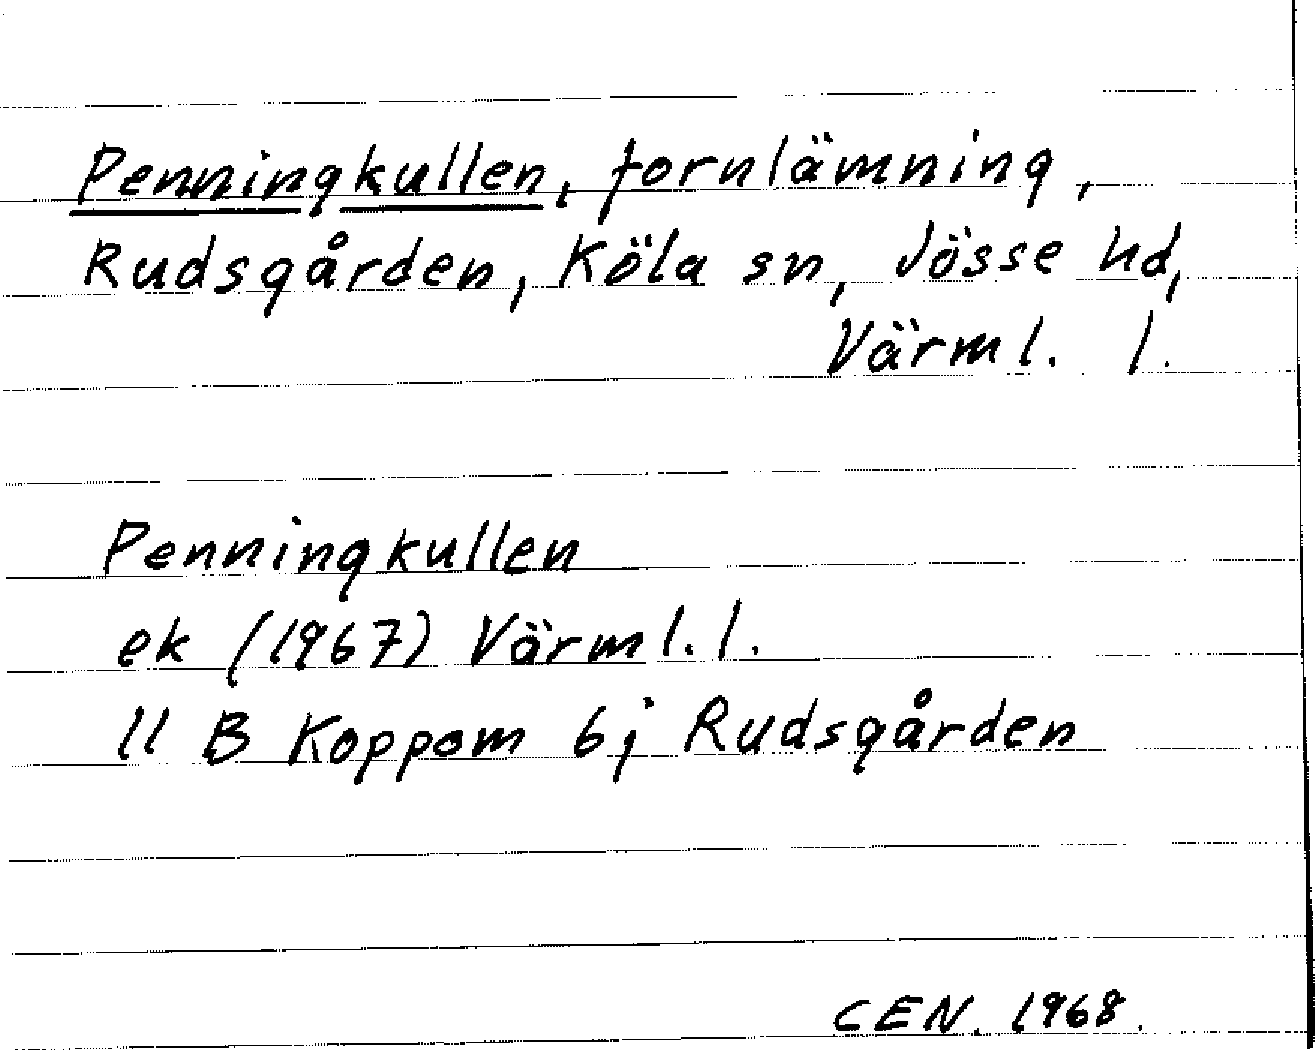 Penningkullen, fornlämning,
Rudsgården, Köla sn, Jösse hd,
Värml. l.
Penningkullen
ek (1967) Värml. l.
11 B Koppom 6j Rudsgården
CEN. 1968.